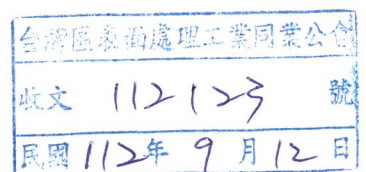 台灣區表面處理工業同業公會
收文 112123 號
民國 112年 9月 12日